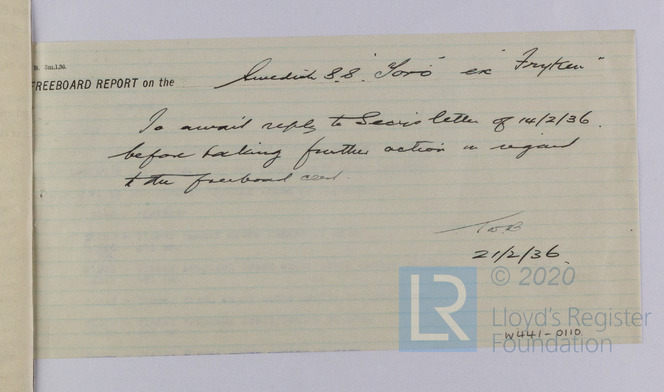 FREEBOARD REPORT on the Swedish S.S. "Toro" ex "Fryken"
To await reply to Secris letter of 14/2/36.
before taking further action in regard
to the freeboard
21/2/36.
© 2020
LR
Lloyd's Register
Foundation
W441-0110